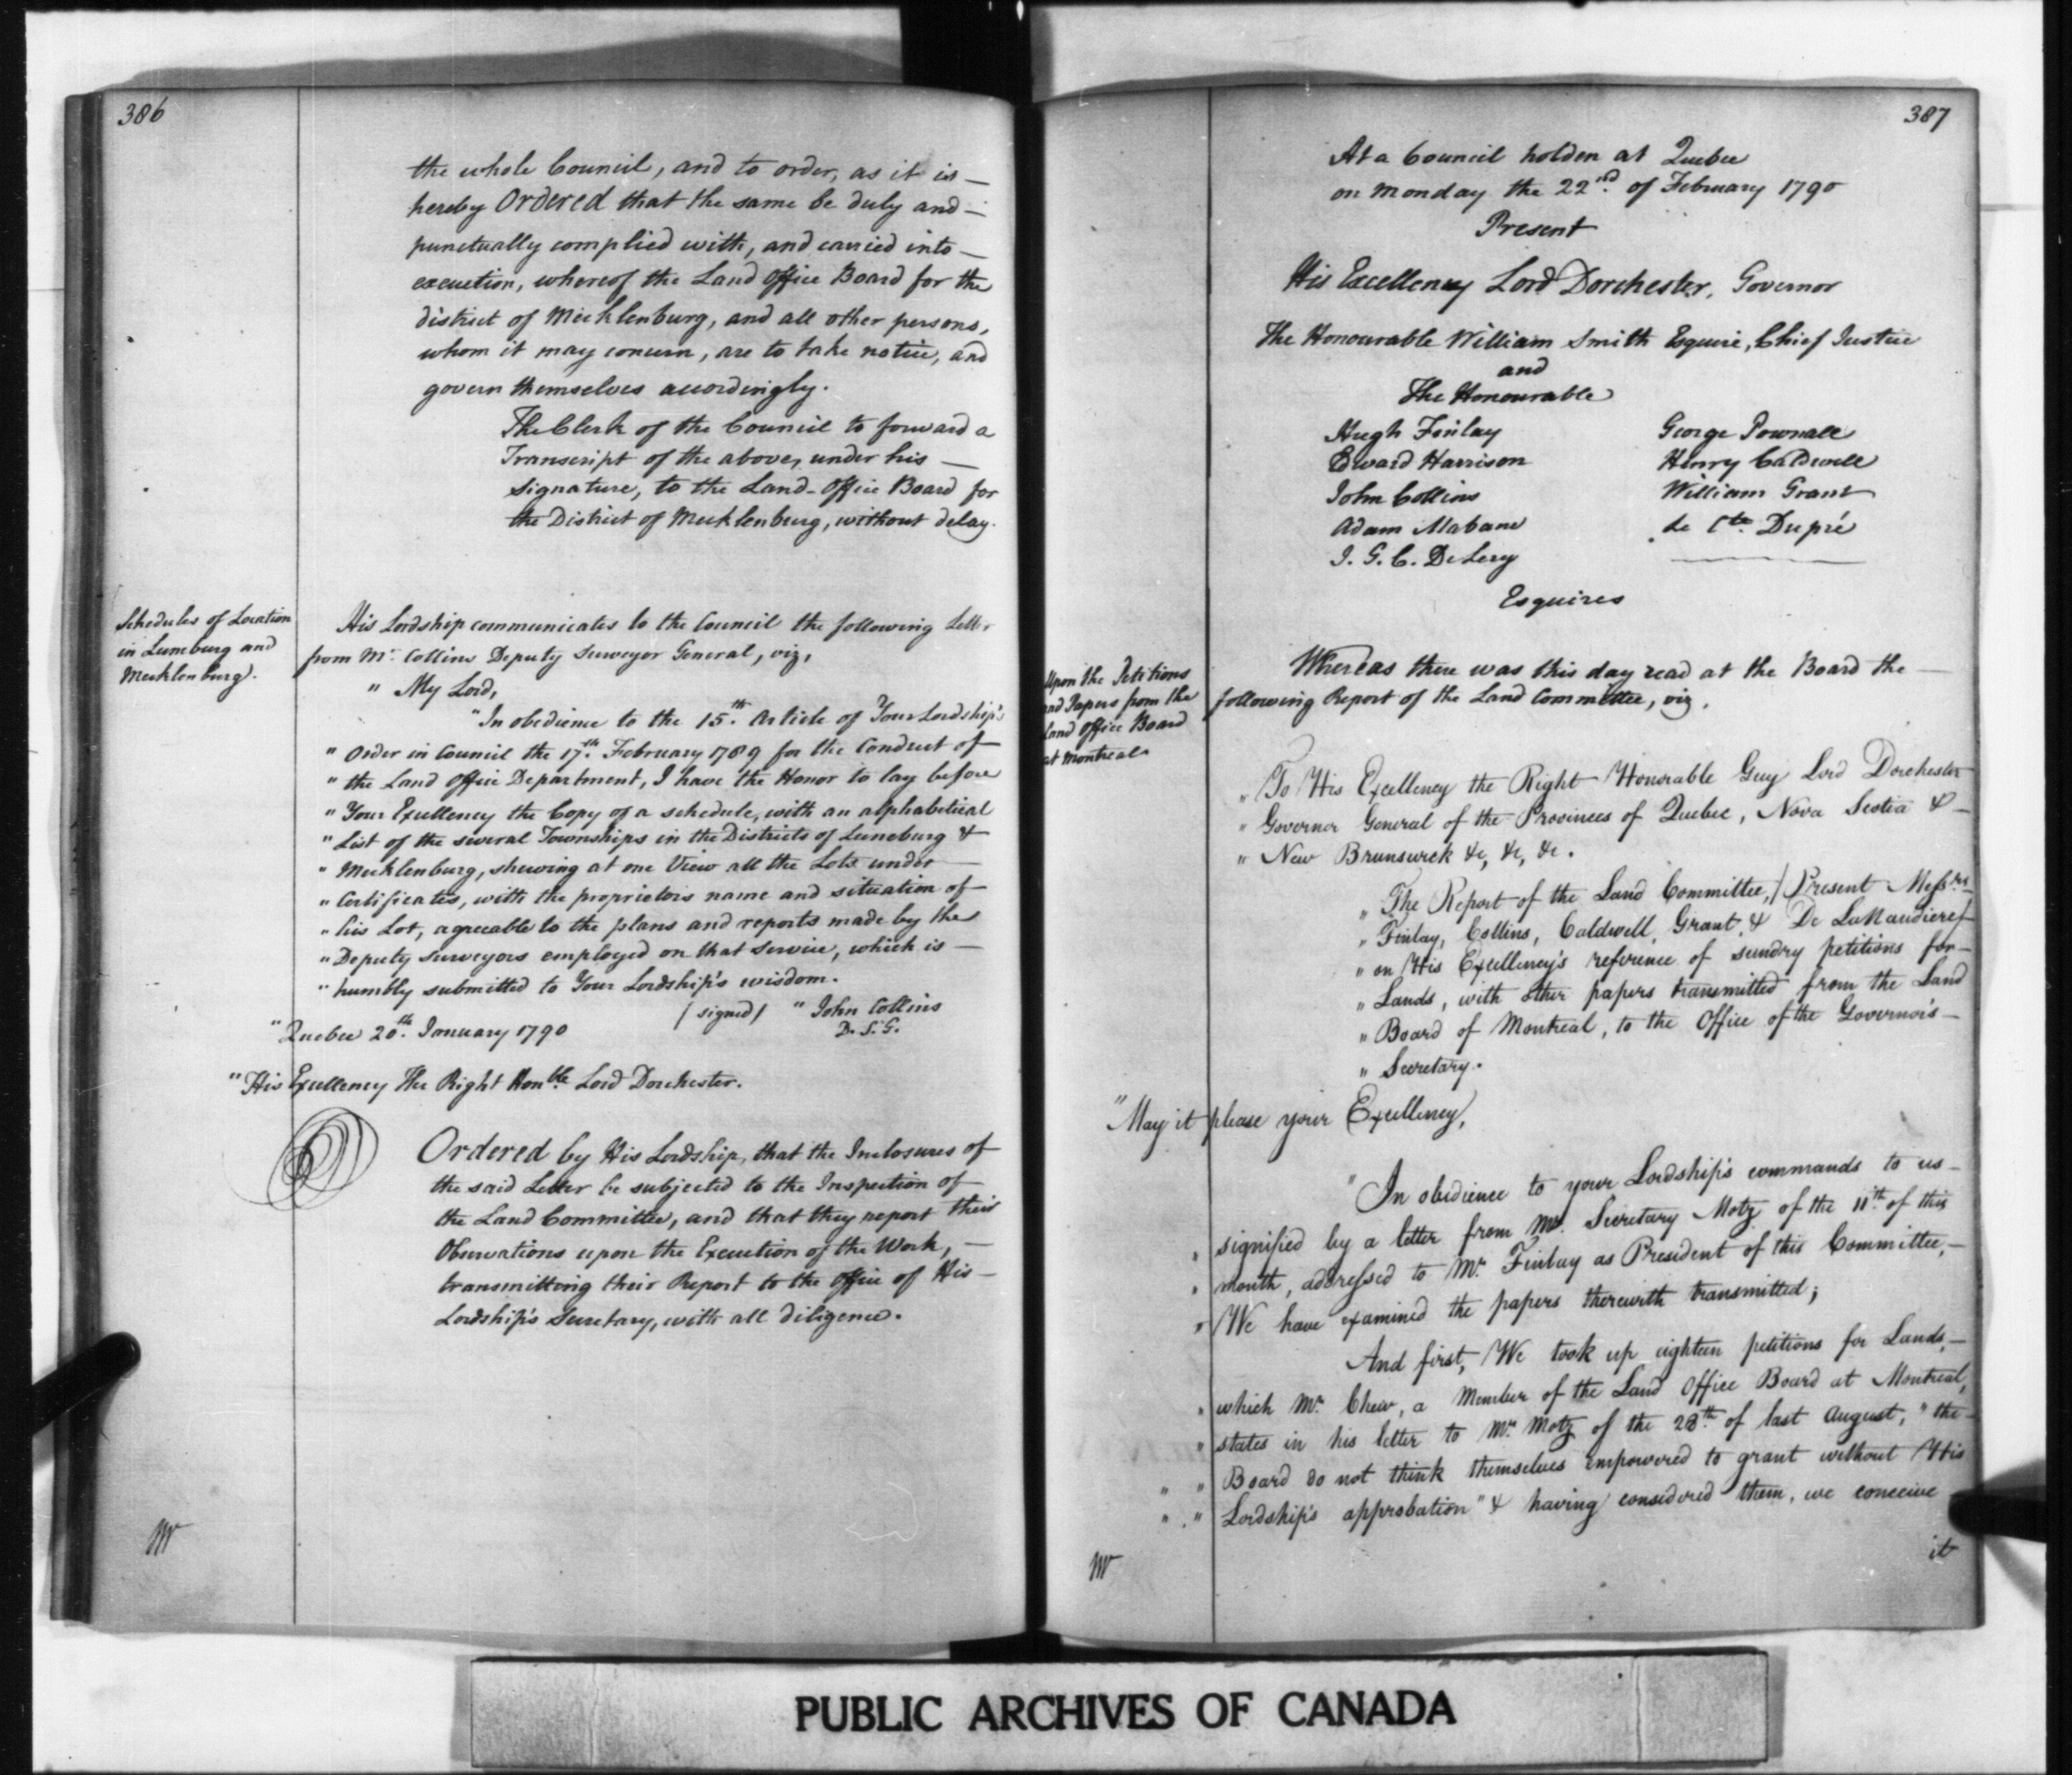 386
the whole Council, and to order, as it is —
hereby Ordered that the same be duly and —
punctually complied with, and carried into —
execution, whereof the Land Office Board for the
district of Mecklenburg, and all other persons,
whom it may concern, are to take notice, and
govern themselves accordingly.
The Clerk of the Council to forward a
Transcript of the above, under his —
signature, to the Land-Office Board for
the District of Mecklenburg, without delay.
Schedules of Location
in Luneburg and
Mecklenburg.
His Lordship communicates to the Council the following Letter
from Mr. Collins Deputy Surveyor General, viz,
" My Lord,
"In obedience to the 15th. Article of Your Lordship's
" Order in Council the 17th. February 1789 for the Conduct of —
" the Land Office Department, I have the Honor to lay before
" Your Excellency the Copy of a schedule, with an alphabetical
" List of the several Townships in the Districts of Luneburg &
" Mecklenburg, shewing at one View all the Lots under —
" Certificates, with the proprietors name and situation of —
" his Lot, agreeable to the plans and reports made by the
" Deputy Surveyors employed on that service, which is —
" humbly submitted to Your Lordship's wisdom.
/ signed / " John Collins
D. S. G.
" Quebec 20th. January 1790
"His Excellency The Right Honble. Lord Dorchester.
Ordered by His Lordship, that the Inclosures of
the said Letter be subjected to the Inspection of
the Land Committee, and that they report their
Observations upon the Execution of the Work, —
transmitting their Report to the Office of His —
Lordship's Secretary, with all diligence.
387
At a Council holden at Quebec
on Monday the 22nd. of February 1790
Present
His Excellency Lord Dorchester, Governor
The Honourable William Smith Esquire, Chief Justice
and
The Honourable
Hugh Finlay George Pownall
Edward Harrison Henry Caldwell
John Collins William Grant
Adam Mabane Le Cte. Dupré
J. G. C. DeLery
Esquires
Upon the Petitions
and Papers from the
Land Office Board
at Montreal
Whereas there was this day read at the Board the —
following Report of the Land Committee, viz.
" To His Excellency the Right Honorable Guy Lord Dorchester
" Governor General of the Provinces of Quebec, Nova Scotia & —
" New Brunswick &c, &c, &c.
" The Report of the Land Committee, / Present Messrs.
" Finlay, Collins, Caldwell, Grant, & De LaNaudiere /
" on His Excellency's reference of sundry petitions for —
" Lands, with other papers transmitted from the Land
" Board of Montreal, to the Office of the Governor's —
" Secretary.
"May it please your Excellency,
"In obedience to your Lordship's commands to us —
" signified by a letter from Mr. Secretary Motz of the 11th. of this
" month, addressed to Mr. Finlay as President of this Committee, —
" We have examined the papers therewith transmitted;
And first, We took up eighteen petitions for Lands, —
" which Mr. Chew, a Member of the Land Office Board at Montreal,
" states in his letter to Mr. Motz of the 28th. of last August, " the —
" " Board do not think themselves empowered to grant without His
" " Lordship's approbation" & having considered them, we conceive
it
PUBLIC ARCHIVES OF CANADA